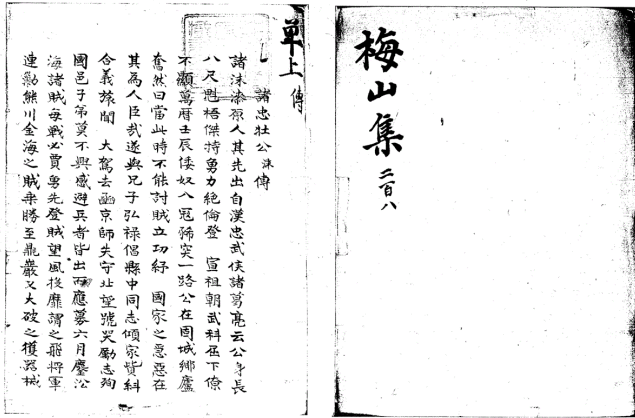 梅山集
二百八
單上
傳
諸忠壮公沫傳
諸沫漆原人其先出自漢忠武侯諸葛亮云公身長
八尺魁梧傑特勇力絶倫登　宣祖朝武科屈下僚
不顯萬曆壬辰倭奴入冦豨突一路公在固城鄉廬
奮然曰當此時不能討賊立功紓　國家之惡惡在
其為人臣哉遂與兄子弘禄倡縣中同志傾家貲糾
合義旅聞　大駕去豳京師失守北望號哭勵志殉
國邑子弟莫不興感避兵者皆出而應募六月鏖㳂
海諸賊每戰必賈勇先登賊望風披靡謂之飛將軍
連勦熊川金海之賊乘勝至鼎巖又大破之獲器械